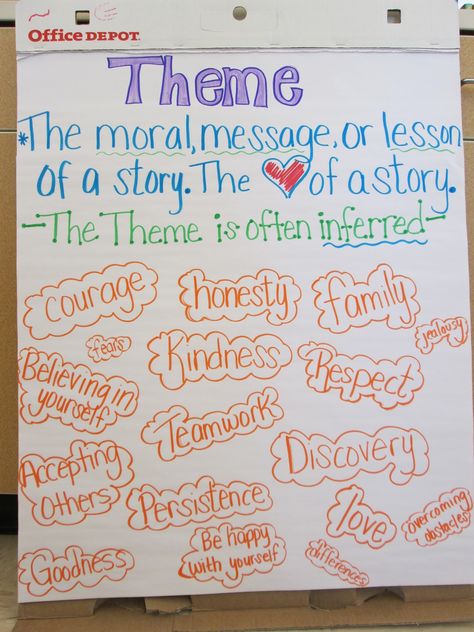 Office DEPOT
Theme
*The moral, message, or lesson
of a story. The ❤ of a story.
-The Theme is often inferred-
courage
honesty
family
jealousy
fears
Kindness
Believing in
yourself
Respect
Teamwork
Discovery
Accepting
Others
Persistence
love
overcoming
obstacles
Be happy
with yourself
differences
Goodness